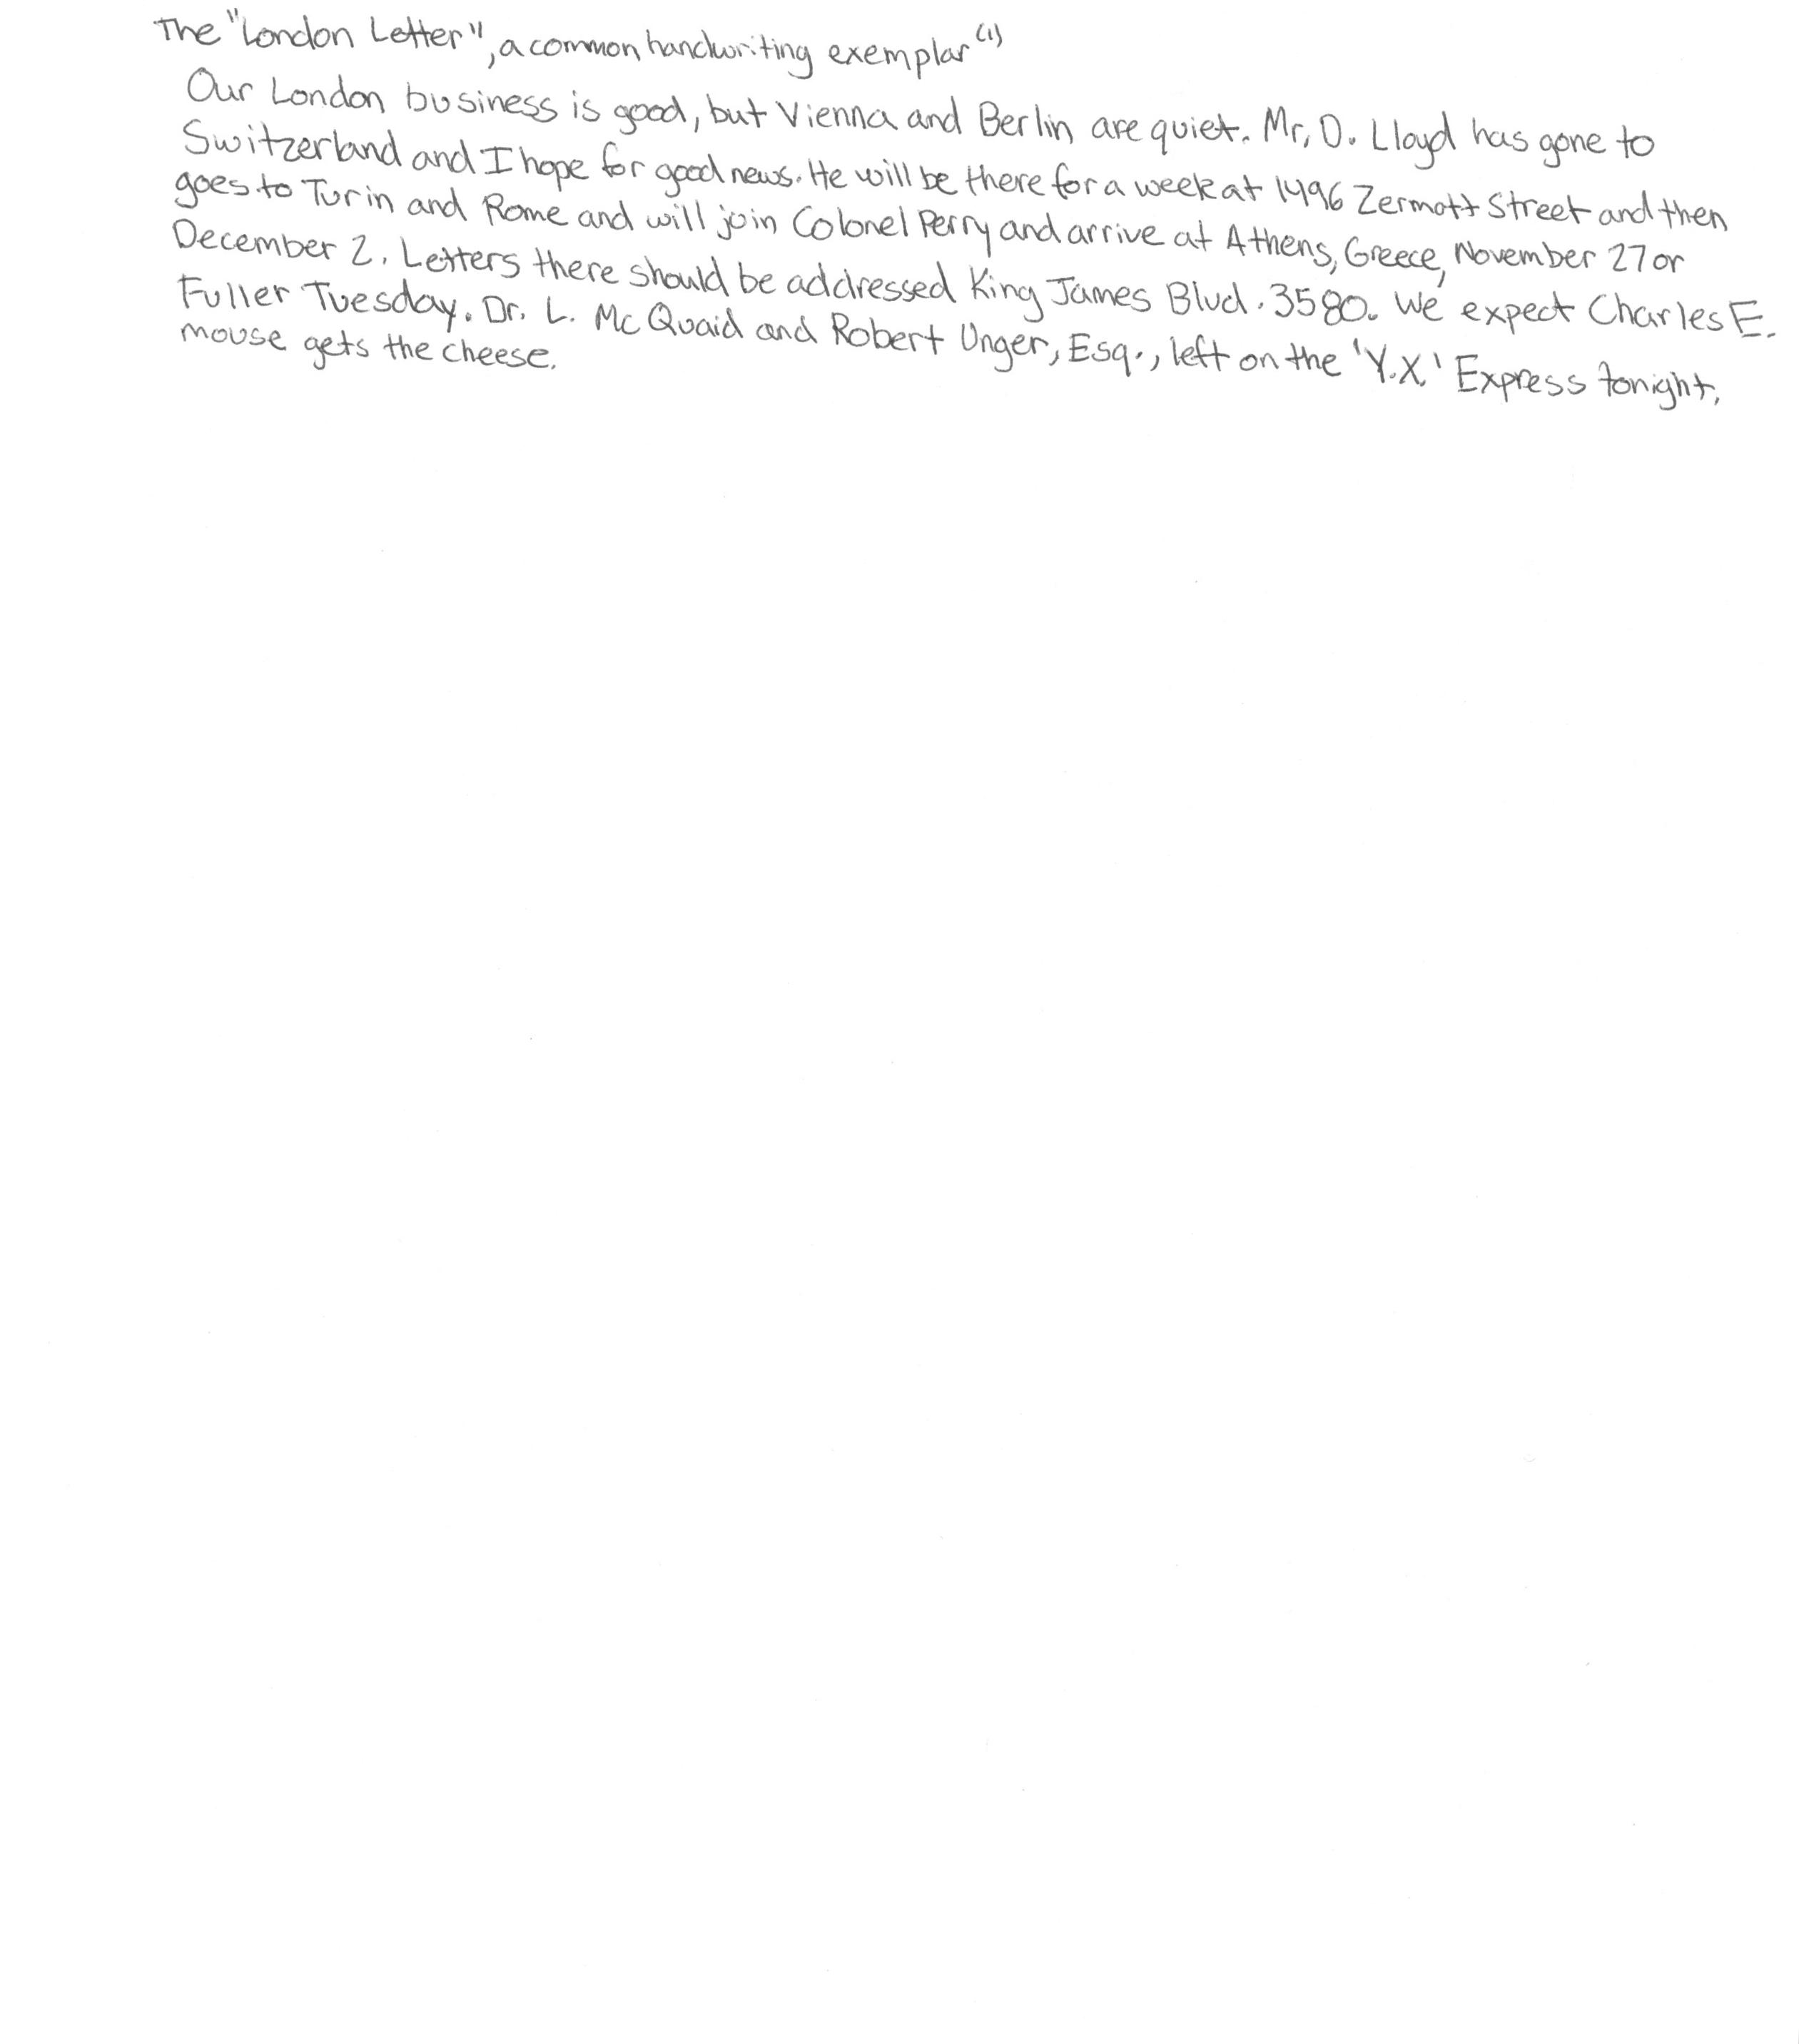 The "London Letter", a common handwriting exemplar (1)
Our London business is good, but Vienna and Berlin are quiet. Mr. D. Lloyd has gone to
Switzerland and I hope for good news. He will be there for a week at 1496 Zermott Street and then
goes to Turin and Rome and will join Colonel Perry and arrive at Athens, Greece, November 27 or
December 2. Letters there should be addressed King James Blvd. 3580. We expect Charles E.
Fuller Tuesday. Dr. L. McQuaid and Robert Unger, Esq., left on the 'Y.X.' Express tonight.
mouse gets the cheese.